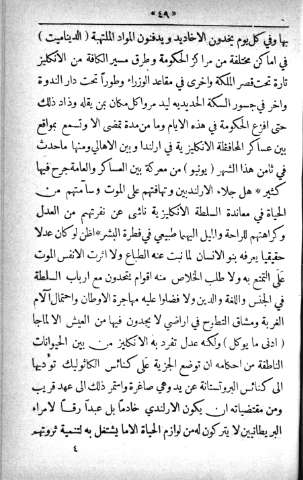 « ٤٩ »
بها وفي كل يوم يخدون الاخاديد ويدفنون المواد الملتهبة ( الديناميت )
في اماكن مختلفة من مراكز الحكومة وطرق مسير الكافة من الانكليز
تارة تحت قصر الملكة واخرى في مقاعد الوزراء وطوراً تحت دار الندوة
واخر في جسور السكة الحديديه ليد مروا كل مكان بمن يقله وزاد ذلك
حتى افزع الحكومة في هذه الايام وما من مدة تمضى الا وتسمع بمواقع
بين عساكر المحافظة الانكليزية في ارلندا وبين الاهالي ومنها ماحدث
في ثامن هذا الشهر ( يونيو ) من معركة بين العساكر والعامة جرح فيها
كثير * هل جلاء الارلنديين وتهافتهم على الموت وسآمتهم من
الحياة في معاندة السلطة الأنكليزية ناشئ عن نفرتهم من العدل
وكراهتهم للراحة والميل اليهما طبيعي في فطرة البشر * اظن لو كان عدلا
حقيقيا يعرفه بنو الانسان لما نبت عنه الطباع ولا اثرت الانفس الموت
على التمتع به ولا طلب الخلاص منه اقوام يتحدون مع ارباب السلطة
في الجنس واللغة والدين ولا فضلوا عليه مهاجرة الاوطان واحتمال آلام
الغربة ومشاق التطرح في اراضي لا يجدون فيها من العيش الا لماجا
( ادنى ما يوكل ) ولكنه عدل تفرد به الأنكليز من بين الحيوانات
الناطقة من احكامه ان توضع الجزية على كنائس الكاثوليك تو٬ديها
الى كنائس البروتستانة عن يد وهي صاغرة واستمر ذلك الى عهد قريب
ومن مقتضياته ان يكون الارلندي خادماً بل عبداً رقاً لامراء
البريطانيين لا يتركون له من لوازم الحياة الا ما يشتغل به لتنمية ثروتهم
٤